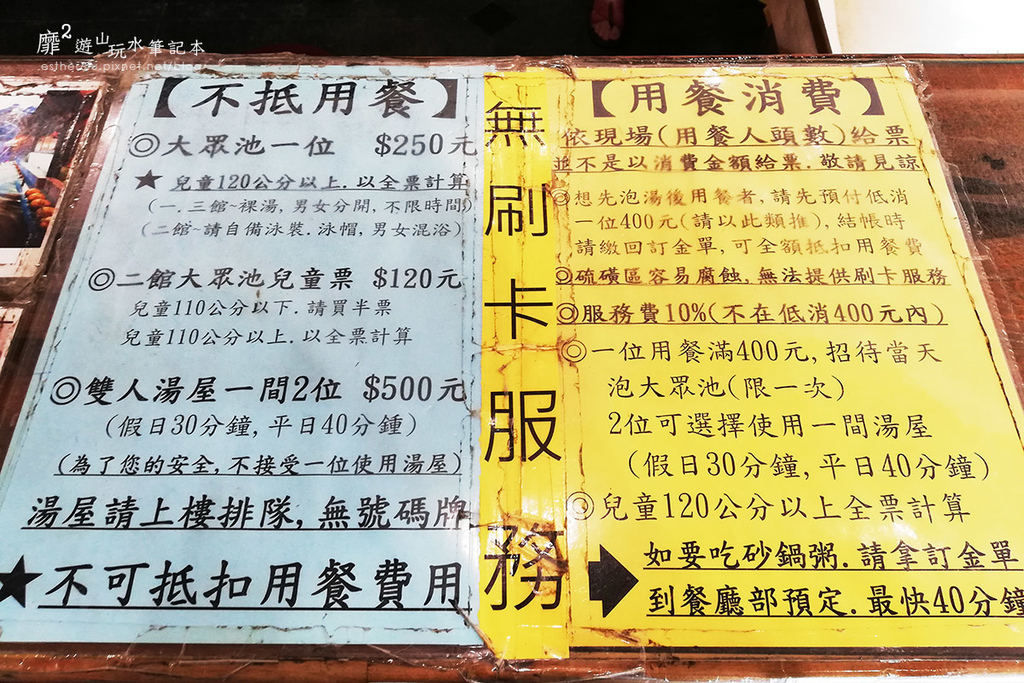 靡2遊山玩水筆記本
【不抵用餐】
◎大眾池一位 $250元
★兒童120公分以上.以全票計算
(一.三館~裸湯,男女分開,不限時間)
(二館~請自備泳裝.泳帽,男女混浴)
◎二館大眾池兒童票 $120元
兒童110公分以下.請買半票
兒童110公分以上.以全票計算
◎雙人湯屋一間2位 $500元
(假日30分鐘,平日40分鍾)
(為了您的安全,不接受一位使用湯屋)
湯屋請上樓排隊,無號碼牌
★不可抵扣用餐費用
無刷卡服務
【用餐消費】
依現場(用餐人頭數)給票
並不是以消費金額給票.敬請見諒
◎想先泡湯後用餐者,請先預付低消
一位400元(請以此類推),結帳時
請繳回訂金單,可全額抵扣用餐費
◎硫磺區容易腐蝕,無法提供刷卡服務
◎服務費10%(不在低消400元內)
◎一位用餐滿400元,招待當天
泡大眾池(限一次)
2位可選擇使用一間湯屋
(假日30分鐘,平日40分鐘)
◎兒童120公分以上全票計算
如要吃砂鍋粥.請拿訂金單
到餐廳部預定.最快40分鐘